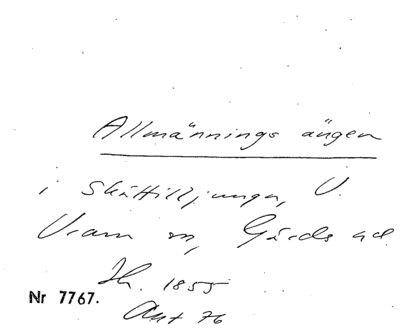 Allmännings ängen
i Skättilljunga, V.
Vram sn, Gärds hd.
Th. 1855
Nr 7767.
Ant 76